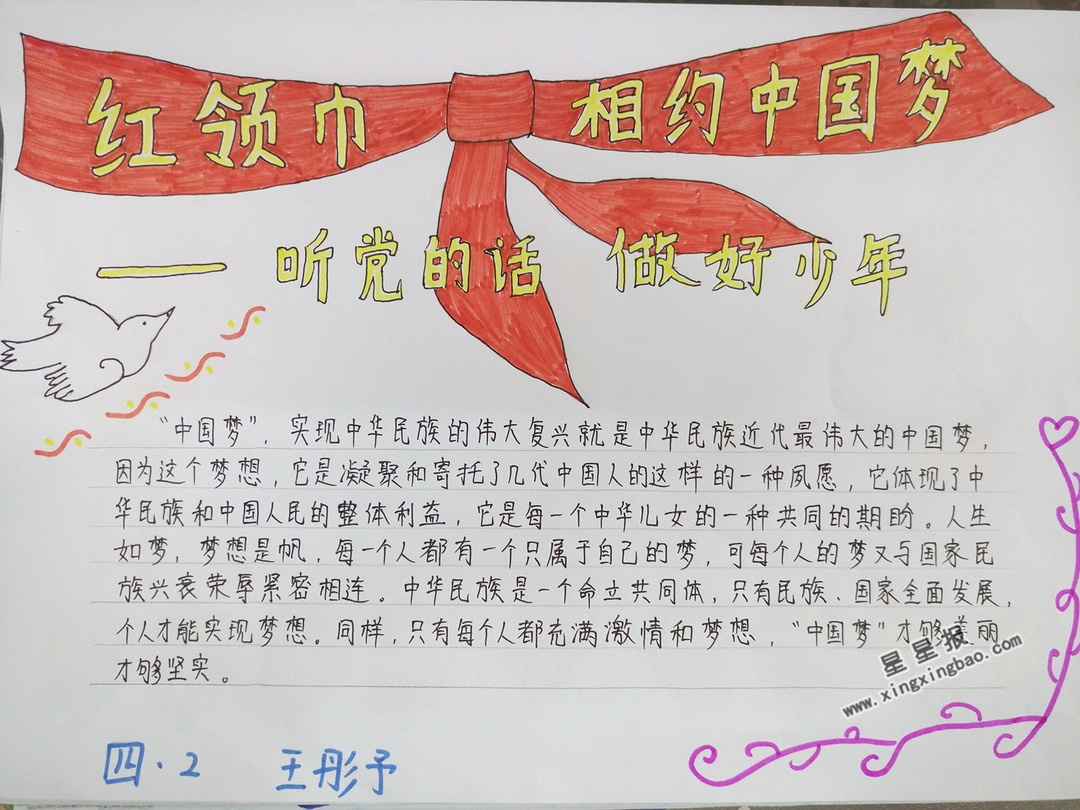 红领巾 相约中国梦
— 听党的话 做好少年
“中国梦”，实现中华民族的伟大复兴就是中华民族近代最伟大的中国梦，
因为这个梦想，它是凝聚和寄托了几代中国人的这样的一种夙愿，它体现了中
华民族和中国人民的整体利益，它是每一个中华儿女的一种共同的期盼。人生
如梦，梦想是帆，每一个人都有一个只属于自己的梦，可每个人的梦又与国家民
族兴衰荣辱紧密相连。中华民族是一个命立共同体，只有民族、国家全面发展，
个人才能实现梦想。同样，只有每个人都充满激情和梦想，“中国梦”才够美丽
才够坚实。
星星报
www.xingxingbao.com
四·2 王彤予